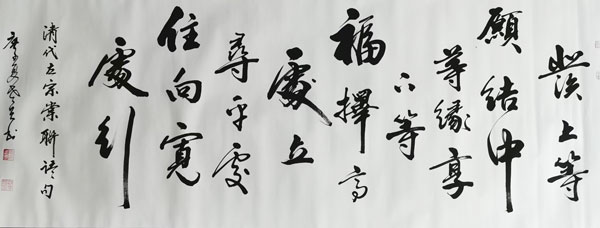 發上等
願結中
等緣享
下等
福擇高
處立
尋平處
住向寬
處行
清代左宗棠聯語句
庚子夏